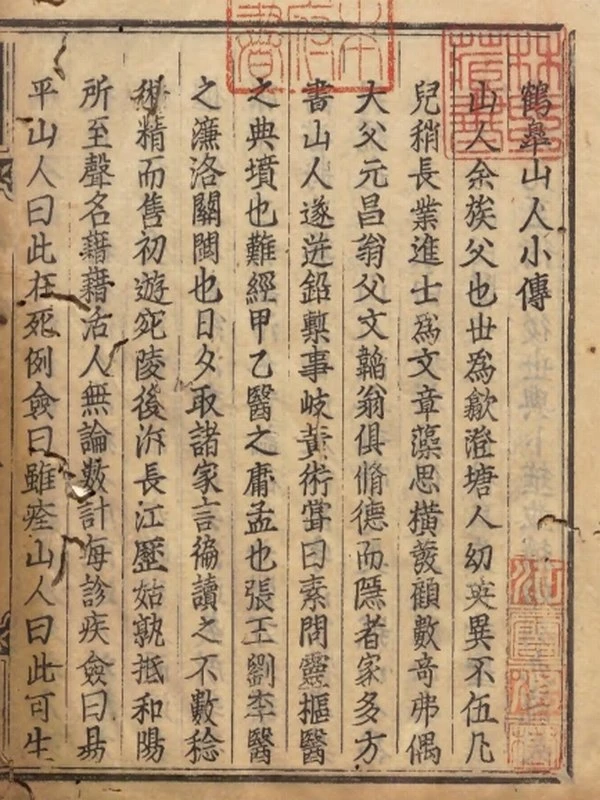 鶴臯山人小傳
山人余族父也世爲歙澄塘人幼英異不伍凡
兒稍長業進士爲文章藻思橫發顧數竒弗偶
大父元昌翁父文韜翁俱脩德而隱者家多方
書山人遂迸鉛槧事岐黄術甞曰素問靈樞醫
之典墳也難經甲乙醫之庸孟也張王劉李醫
之濂洛關閩也日夕取諸家言徧讀之不數稔
術精而售初遊宛陵後泝長江歷姑孰抵和陽
所至聲名藉藉活人無論数計每診疾僉曰易
平山人曰此在死例僉曰雖痊山人曰此可生